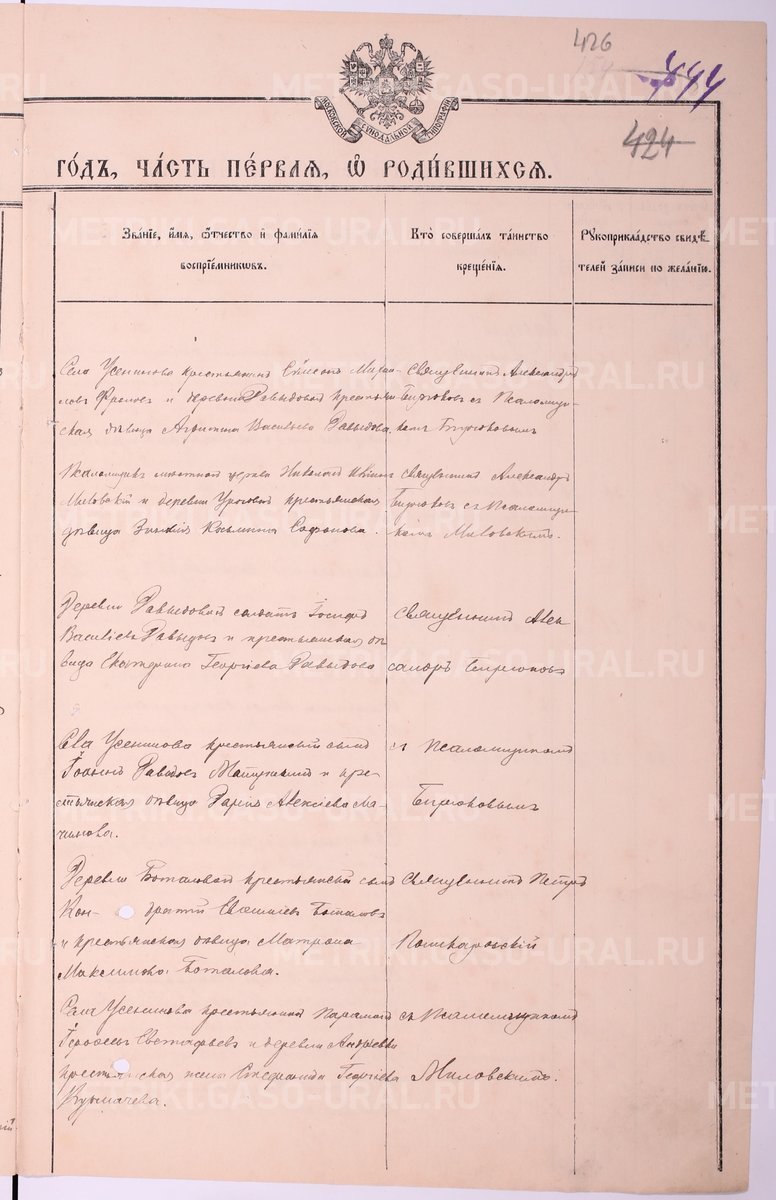 426
444
424
МОСКОВСКОЙ СѴНОДАЛЬНОЙ ТИПОГРАФІИ
ГО́ДЪ, ЧА́СТЬ ПЕ́РВАЯ, Ѡ҆ РОДИ́ВШИХСЯ.
Зва́нїе, и҆́мя, ѻ҆́тчество и҆ фами́лїя
воспрїе́мникѡвъ.
Кто̀ соверша́лъ та́инство
креще́нїя.
Рꙋкоприкла́дство свидѣ́
телей за́писи по жела́нїю.
Села Усенинова крестьянинъ Симеонъ
Фроловъ и деревни Давыдовой крестьян
ская дѣвица Агриппина Васильева Давыдова.
Священникъ Александръ
Бирюковъ съ Псаломщи-
комъ Бирюковымъ
Псаломщикъ мѣстной церкви Николай
Миловскій и деревни крестьянская
дѣвица Зиновія Косьмина Сафонова.
Священникъ Александръ
Бирюковъ съ Псаломщи-
комъ Миловскимъ.
Деревни Давыдовой солдатъ Іосифъ
Васильевъ Давыдовъ и крестьянская дѣ
вица Екатерина Георгіева Давыдова
Священникъ Алек
сандръ Бирюковъ
Села Усенинова крестьянскій сынъ
Іоаннъ Давидовъ и кре-
стьянская дѣвица Дарія Алексіева Ма-
чинова.
съ Псаломщикомъ
Бирюковымъ
Деревни Боталовой крестьянскій сынъ
Кон- дратій Боталовъ
и крестьянская дѣвица Матрона
Максимова Боталова.
Священникъ Петръ
Пономаревскій
Села Усенинова крестьянинъ
Евстафьевъ и деревни Андреевки
крестьянская жена Стефанида Георгіева
Кузмачева.
съ Псаломщикомъ
Миловскимъ.
METRIKI.GASO-URAL.RU